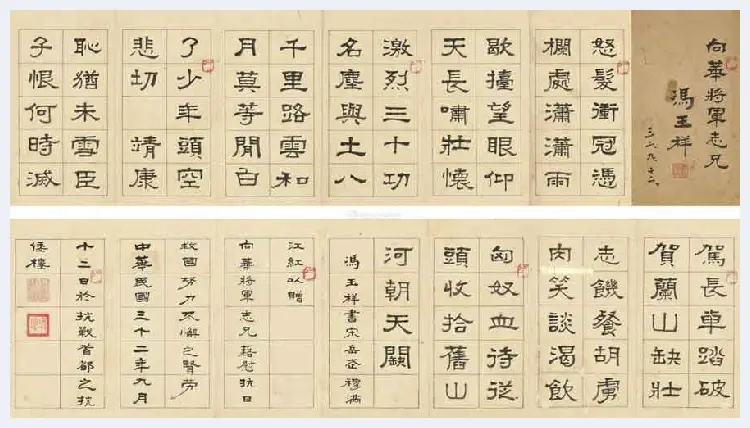 向華將軍志兄
馮玉祥
三二、九、十二
怒髮衝冠憑
欄處瀟瀟雨
歇擡望眼仰
天長嘯壯懷
激烈三十功
名塵與土八
千里路雲和
月莫等閒白
了少年頭空
悲切 靖康
恥猶未雪臣
子恨何時滅
駕長車踏破
賀蘭山缺壯
志饑餐胡虜
肉笑談渴飲
匈奴血待從
頭收拾舊山
河朝天闕
馮玉祥書宋岳武穆滿
江紅以贈
向華將軍志兄藉慰抗日
救國努力不懈之賢勞
中華民國三十二年九月
十二日於抗戰首都之抗
倭樓